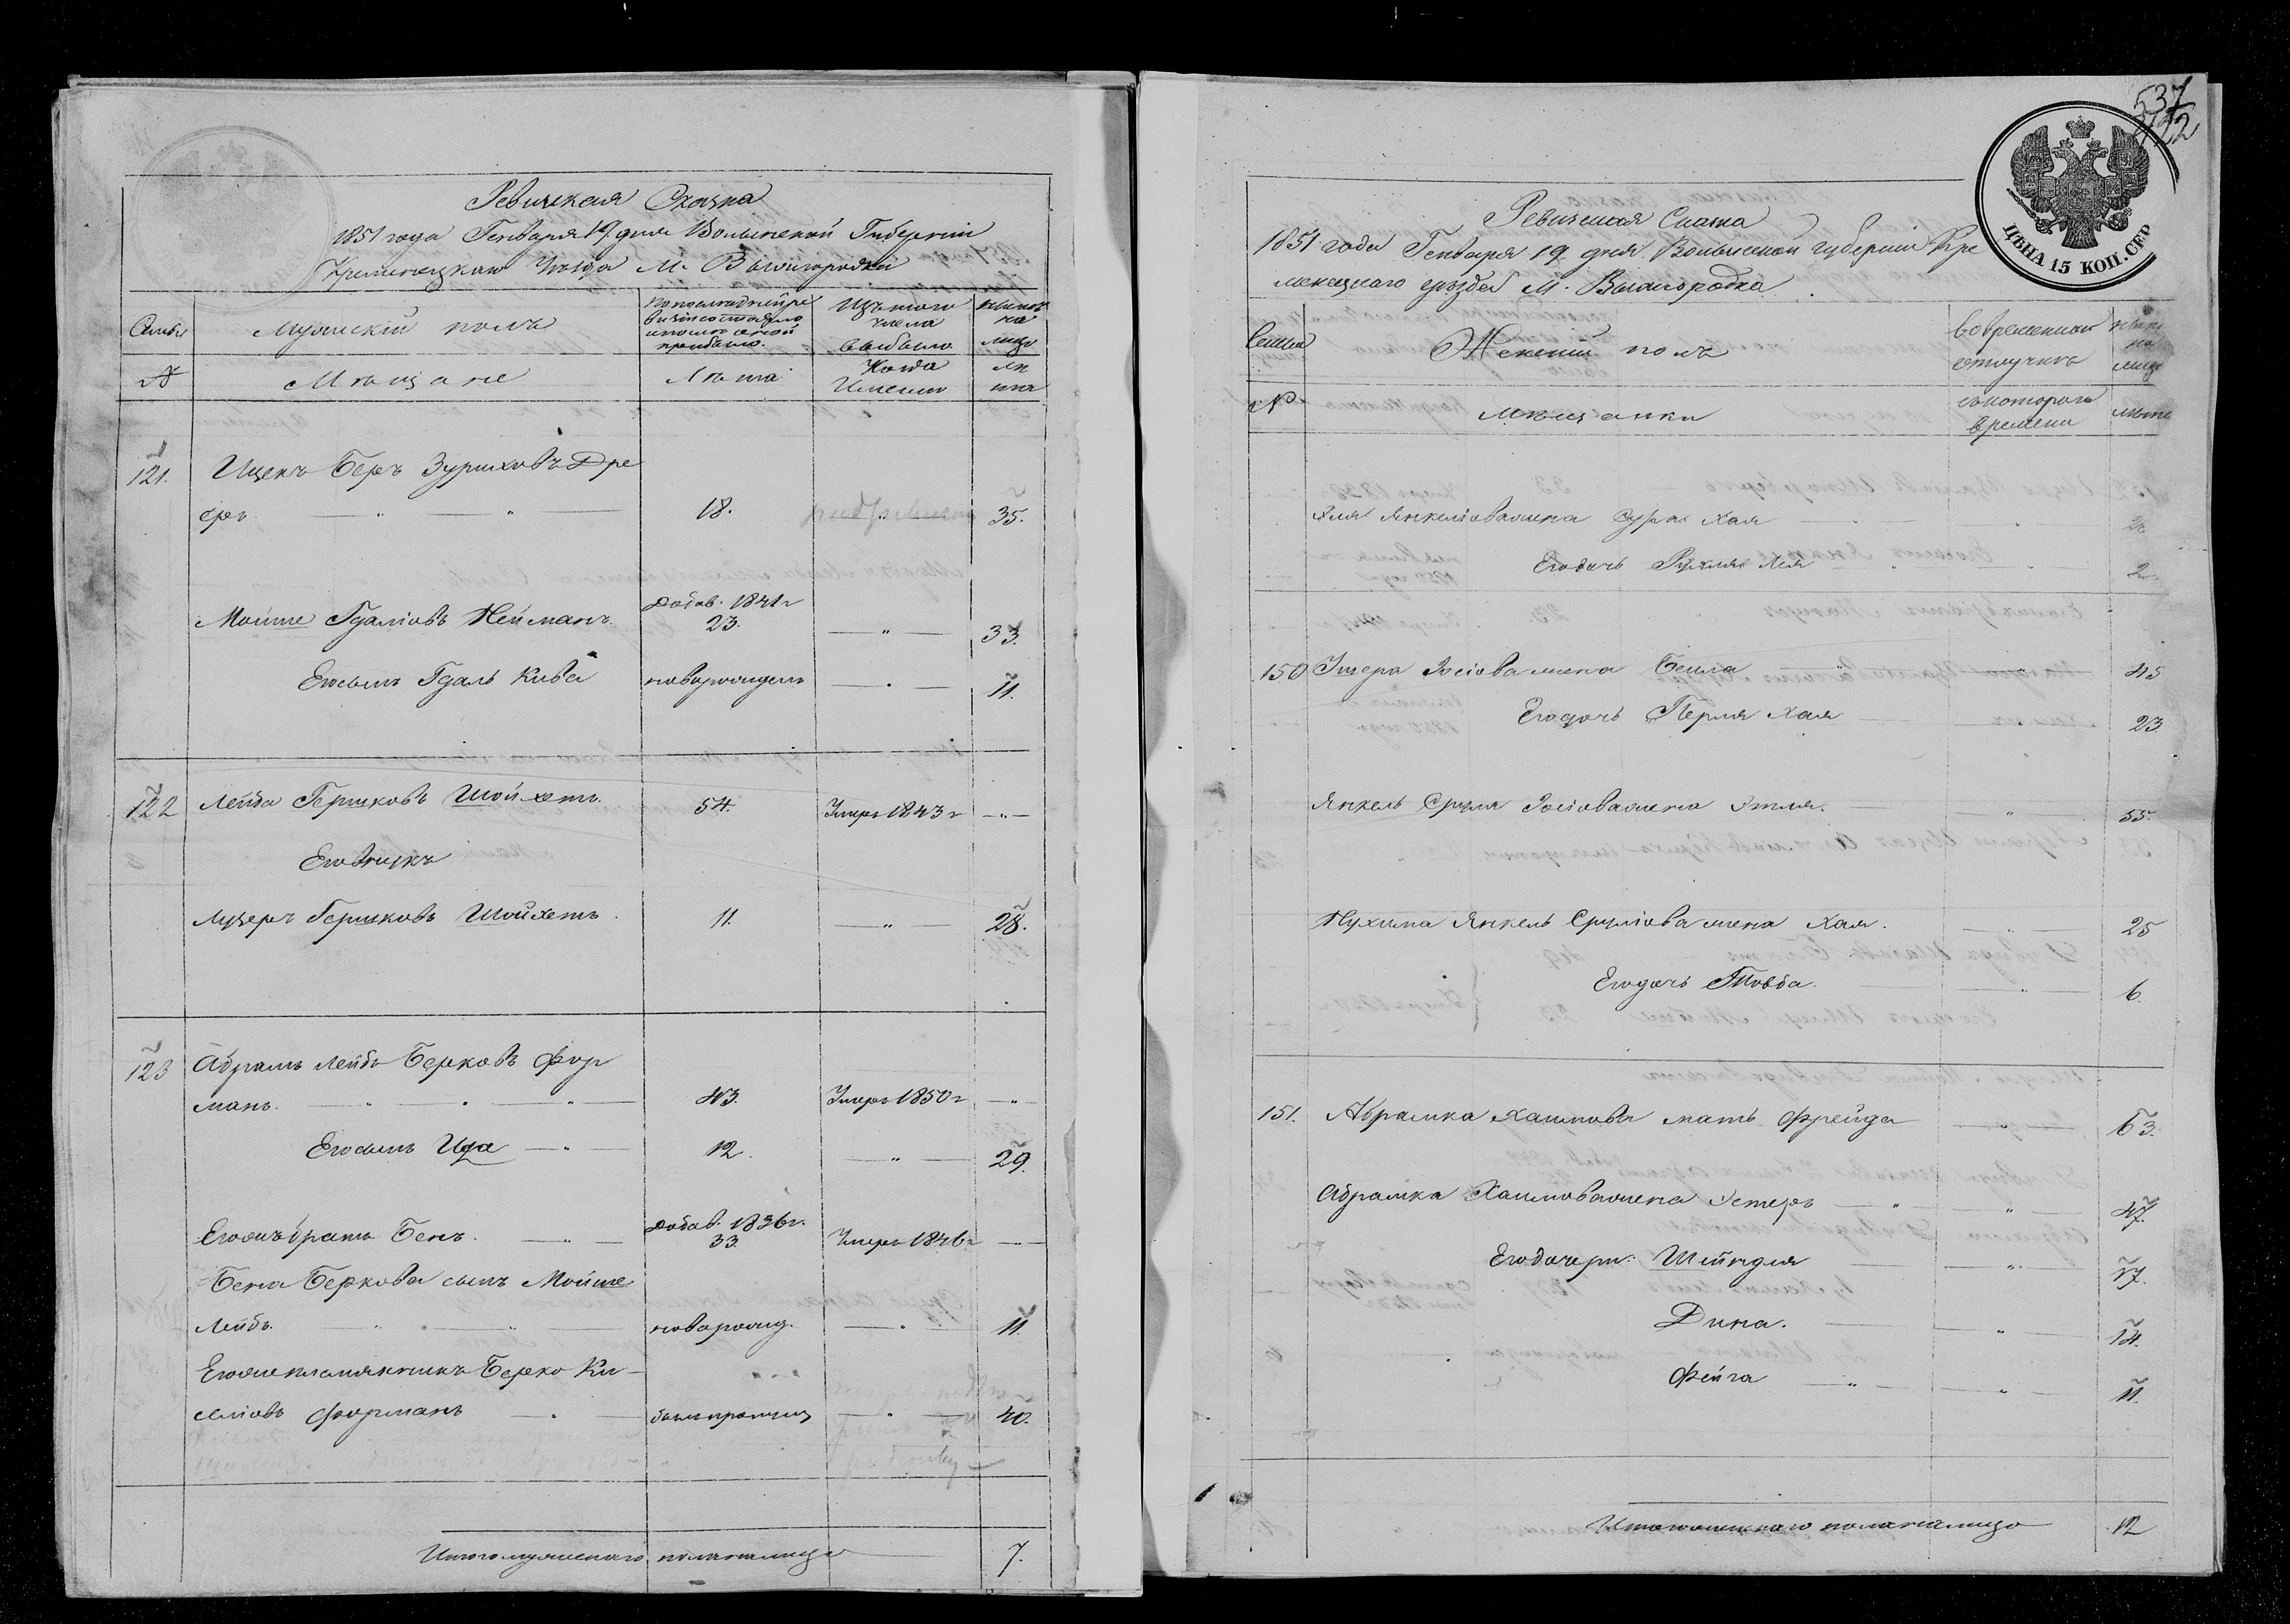 Ревижская Сказка
1851 года Генваря 19 дня Волынской Губернии
Кременецкаго Уезда М. Вышгородки
Семьи
Мужеский полъ
По последней ре
визии состояло
и после оной
прибыло.
Изъ того
числа
выбыло
ныне
на
лицо
№
Мещане
Лета
Когда
Именно
Ле
та
121.
Ицекъ Беръ Зурыховъ Дре
еръ
18.
35.
Мойше Гдаліовъ Нейманъ
добав. 1841 г
23.
33.
Его сынъ Гдаль Кива
новорожденъ
11.
122
Лейба Гершковъ Шойхетъ.
54.
Умеръ 1843 г
Его внукъ
Лузеръ Гершковъ Шойхетъ.
11.
28.
123
Абрамъ Лейбъ Берковъ Фур
манъ.
43.
Умеръ 1850 г
Его сынъ Ица
12.
29.
Его же братъ Бенъ.
добав. 1836 г.
33.
Умеръ 1846 г
Бена Беркова сынъ Мойше
Лейбъ.
новорожд.
11.
Его же племянникъ Берко Ки-
селіовъ Фурманъ
былъ пропущ
40.
Итого мужескаго пола на лицо
7.
537
122
ЦѢНА 15 КОП. СЕР
Ревижская Сказка
1851 года Генваря 19 дня Волынской губерніи Кре
менецкаго уезда М. Вышгородка
Семьи
Женскій полъ
Во временной
отлучке
ныне
на
лицо
№
Мещанки
съ котораго
времени
лета
Янкеліова жена Сура Хая
Его дочь Рухля Лея
2.
150
Умера Іосіова жена Бейла
45
Его дочь Перля Хая
23.
Янкель Сруля Іосіова жена Этля.
55.
Нухима Янкель Сруліова жена Хая.
25
Его дочь Товба.
6.
151.
Абрамка Хаимова мать Фрейда
63.
Абрамка Хаимова жена Эстеръ
47.
Его дочери: Шейндля
17.
Дина.
14.
Фейга
11.
Итого женскаго пола на лицо
12